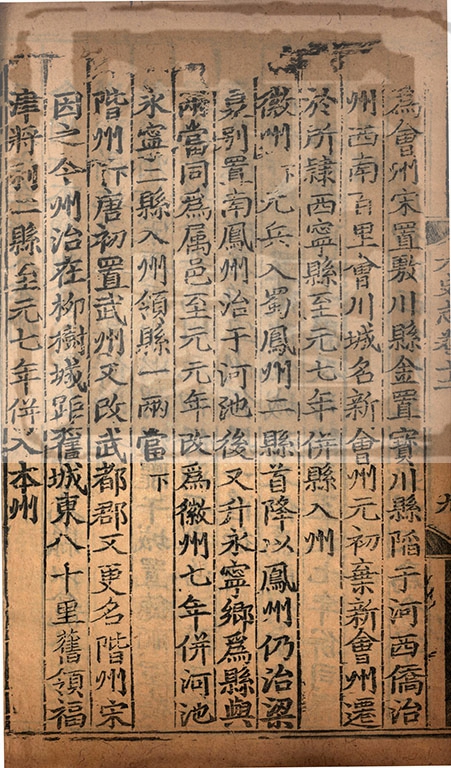 史志卷十二
九
為會州宋置敷川縣金置寶川縣陷于河西僑治
州西南百里會川城名新會州元初棄新會州遷
於所隸西寧縣至元七年併縣入州
徽州下元兵入蜀鳳州二縣首降以鳳州仍治梁
泉別置南鳳州治于河池後又升永寧鄉爲縣與
兩當同爲属邑至元元年改爲徽州七年併河池
永寧二縣入州領縣一兩當下
階州下唐初置武州又改武都郡又更名階州宋
因之今州治在柳樹城距舊城東八十里舊領福
津將利二縣至元七年併入本州